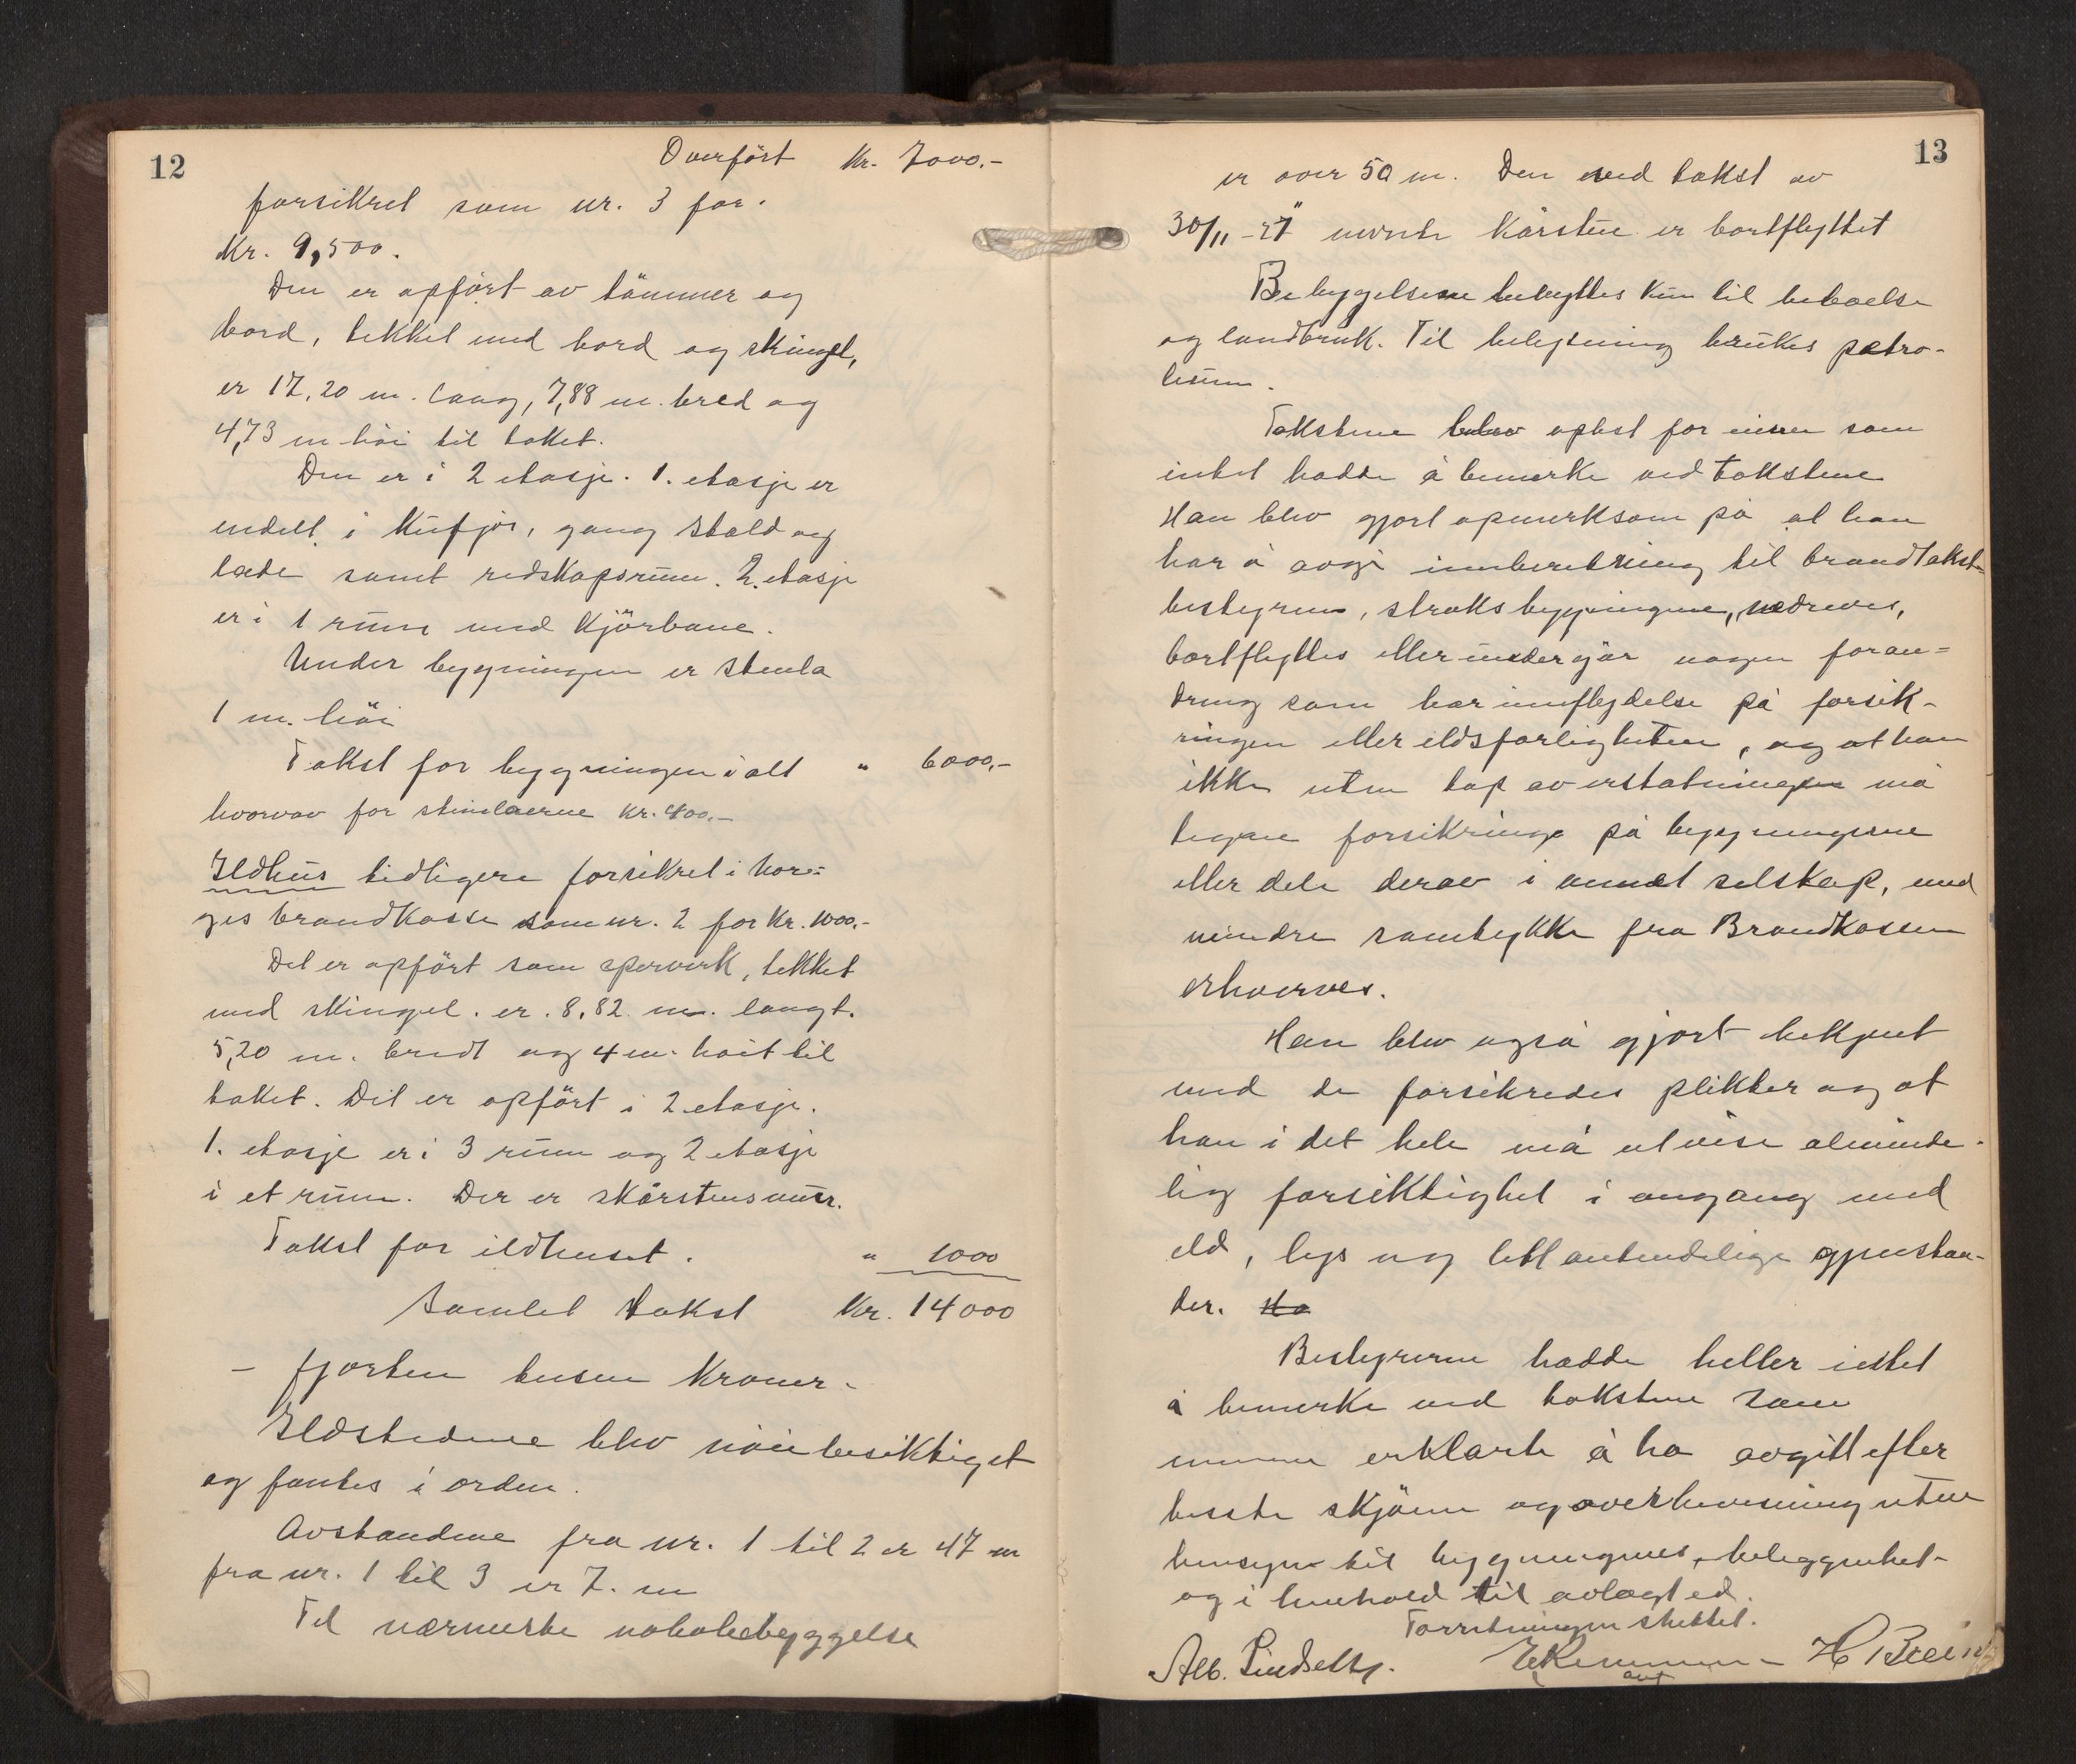 12
Overført Kr. 7000.-
forsikret som nr. 3 for.
Kr. 9,500.
Den er opført av tömmer og
bord, tekket med bord og skingel,
er 17,20 m. lang, 7,88 m. bred og
4,73 m höi til taket.
Den er i 2 etasje. 1. etasje er
indelt i kufjös, gang stald og
lade samt redskapsrum. 2. etasje
er i 1 rum med kjörbane.
Under bygningen er stenla
1 m. höi
Takst for bygningen i alt " 6000,-
hvorav for stenlaerne kr. 400.-
Ildhus tidligere forsikret i Nor=
ges brandkasse som nr. 2 for Kr. 1000.-
Det er opfört som sperverk, tekket
med skingel. er. 8,82 m. langt.
5,20 m. bredt og 4 m. höit til
taket. Det er opfört i 2 etasje.
1. etasje er i 3 rum og 2 etasje
i et rum. Der er skorstensmur.
Takst for ildhuset. " 1000
Samlet takst Kr. 14000
- fjorten tusen kroner -
Ildstedene blev nöie besiktiget
og fantes i orden.
Avstandene fra nr. 1 til 2 er 47 m
fra nr. 1 til 3 er 7. m
Til nærmeste nabobebyggelse
13
er over 50 m. Den ved takst av
30/11 -27 nevnte korsten er bortflyttet
Bebyggelsene benyttes kun til beboelse
og landbruk. Til belysning brukes petro-
leum.
Takstene blev oplest for eieren som
intet hadde å bemerke ved takstene
Han blev gjort opmerksom på at han
har å avgi innberetning til brandtakst=
bestyreren, straks bygningene, nedreves,
bortflyttes eller undergår nogen foran=
dring som har innflydelse på forsik-
ringen eller eldsfarligheten, og at han
ikke uten tap av erstatningen må
tegne forsikring på bygningene
eller dele derav i annet selskap, med
mindre samtykke fra Brandkassen
erhverves.
Han blev også gjort bekjent
med de forsikredes plikter og at
han i det hele må utvise alminde-
lig forsiktighet i omgang med
eld, lys og lettantendelige gjenstan-
der. Ha
Bestyreren hadde heller intet
å bemerke ved takstene som
mennene erklærte å ha avgitt efter
beste skjönn og overbevisning uten
hensyn til bygningenes beleggenhet
og i henhold til avlagt ed.
Forretningen sluttet.
Alb. Lindseth.